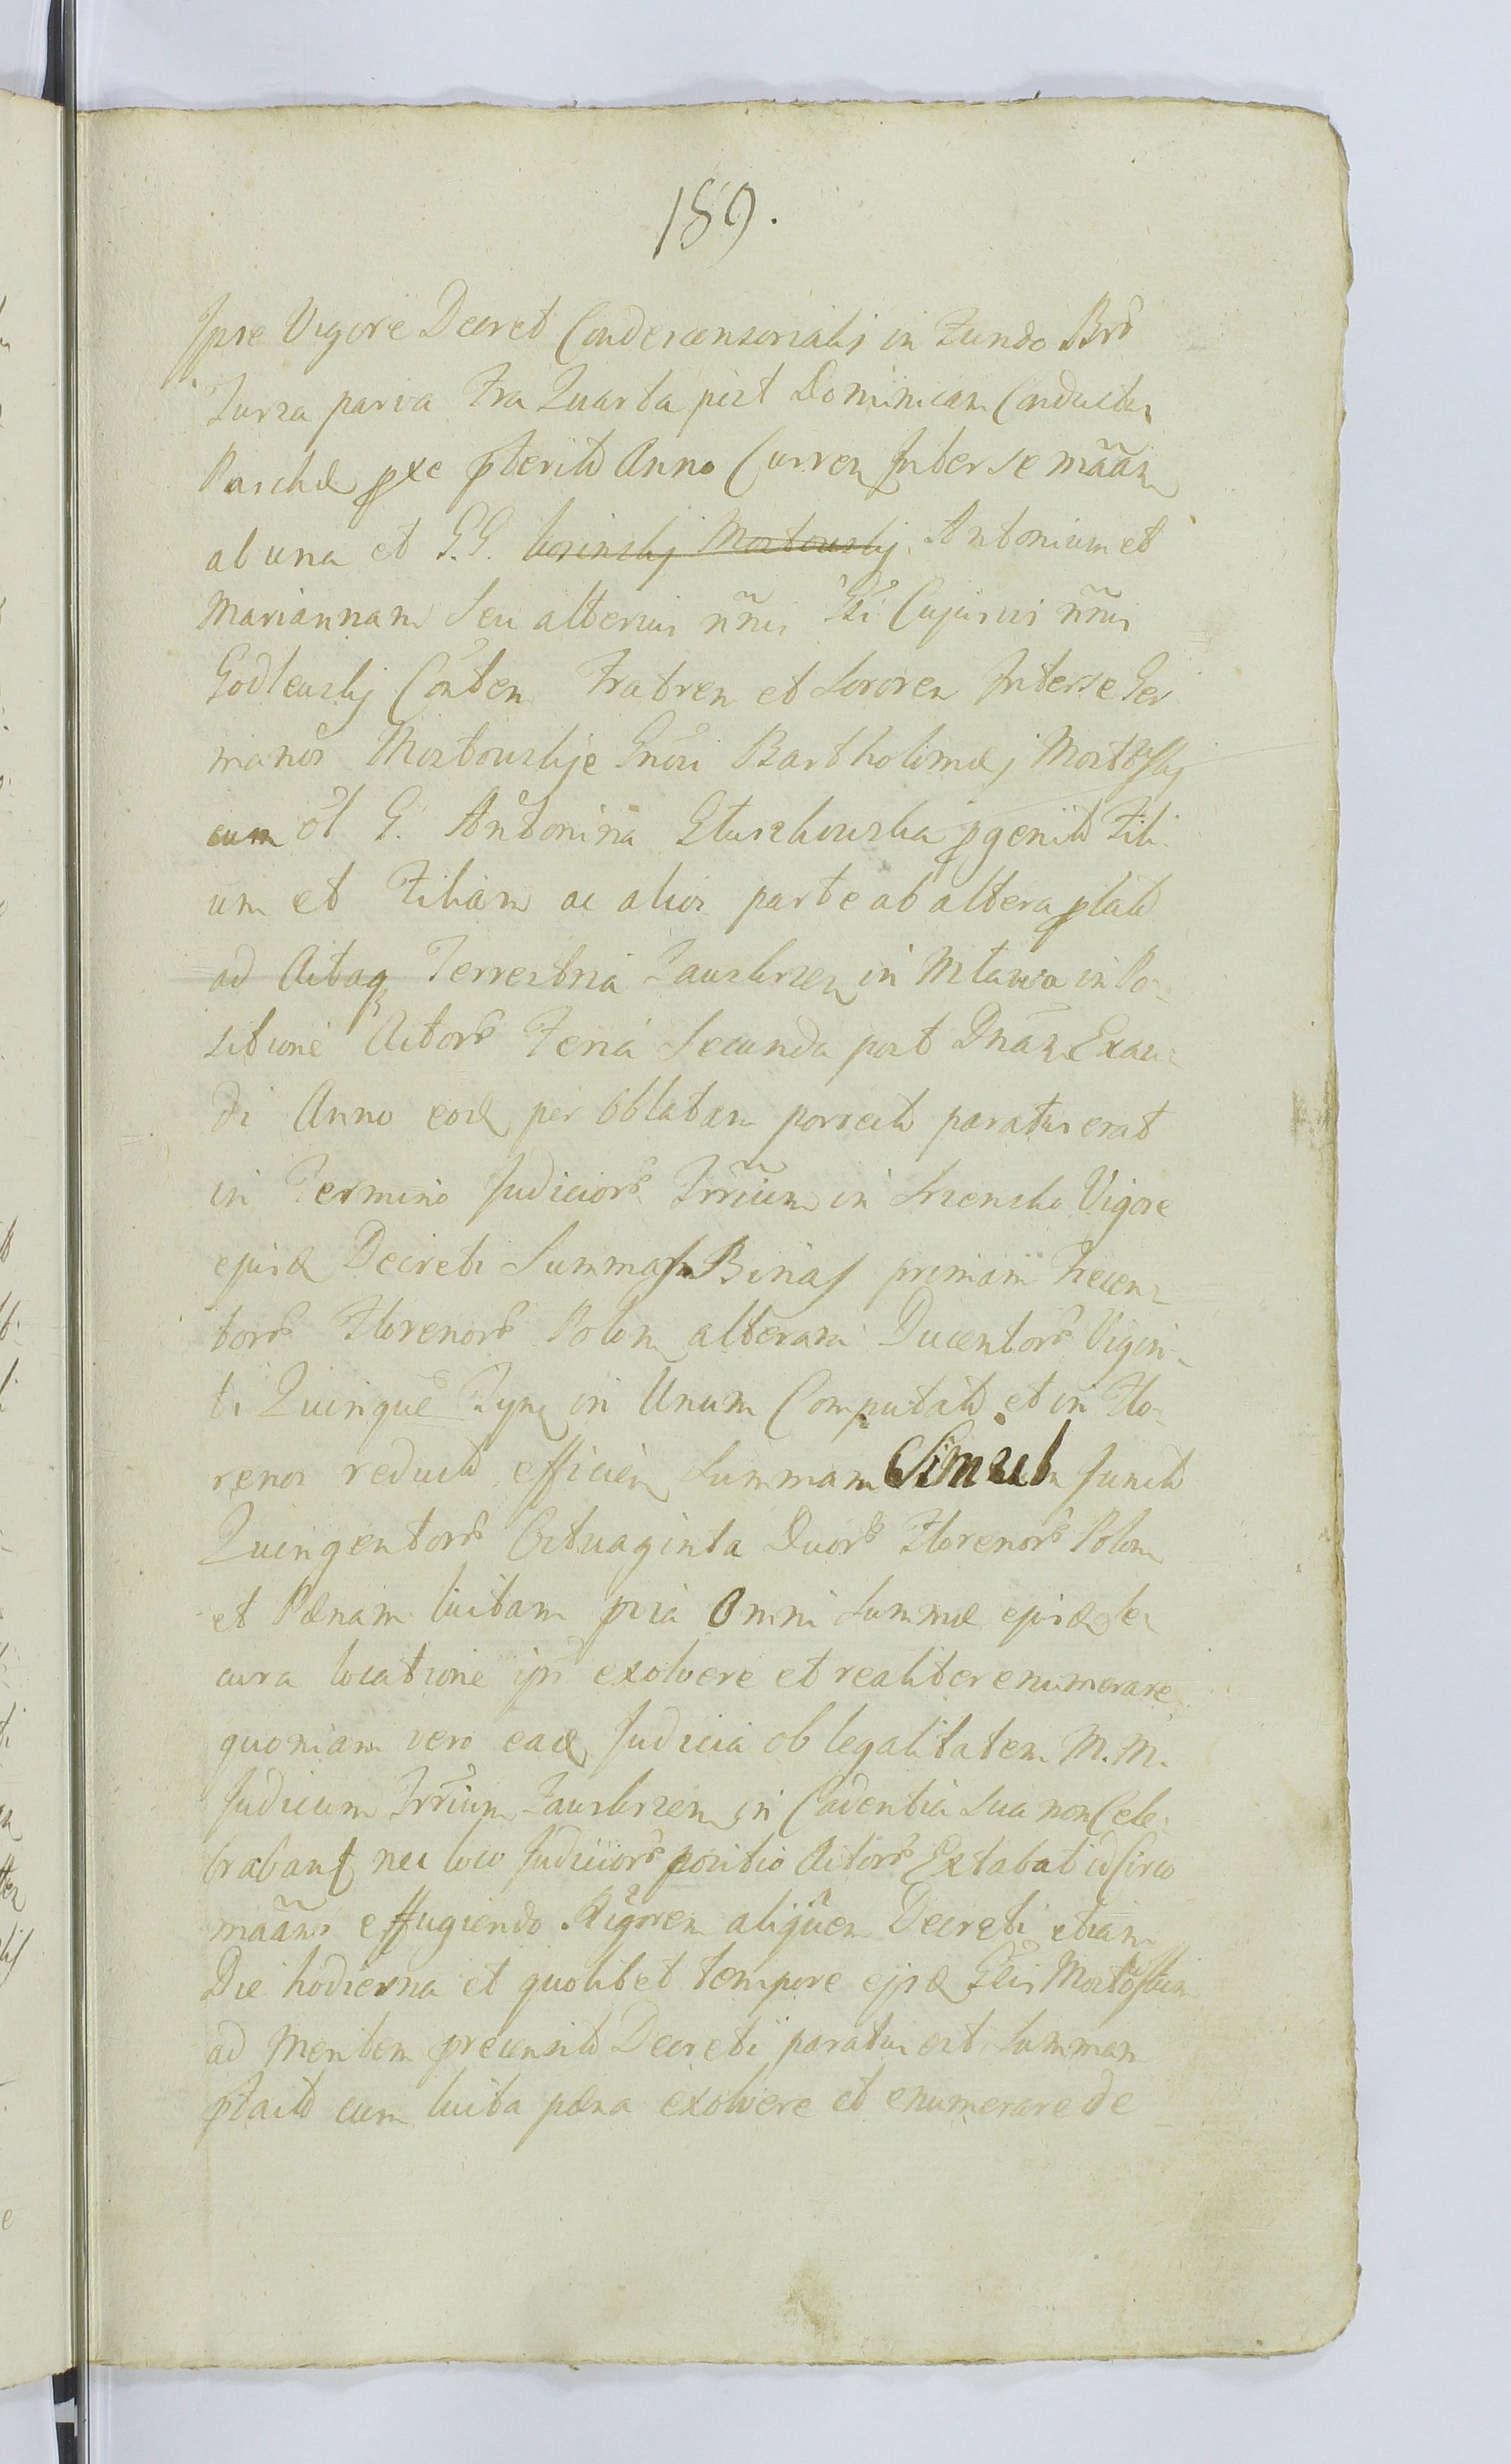 189.
Ipse Vigore Decret Condescensorialis in Fundo Brŏ
Turza parva Fra Quarta post Dominicam Conductus
Paschæ pxe pterit Anno Curren Inter se mããn
ab una et G.G. Antonium et
Mariannam Seu alterius nñis Gsi Cujusvis nñis
Godlewskj Cõnten Fratrem et Sororem Inter se Ger
manos Mostowskje Gnõsi Bartholomæj Mostowskj
cum ol G. Antonina Gluszkowska pgenit Fili
um et Filiam ac alios parte ab altera plat
ad Actaq Terrestria Zauskrzen in Mlawa in Po-
sitione Actorŏ Feria Secunda post Dnãm Exau-
di Anno eod per Oblatam porrect paratus erat
in Termino Judiciorŏ Trrium in Szrensko Vigore
ejusd Decreti Summas Binas primam Trecen-
torŏ Florenorŏ Polon alteram Ducentorŏ Vigin-
ti Quinque Tynf in Unum Computat et in Flo-
renos reduct efficien Summam Simul Junct
Quingentorŏ Octuaginta Duorŏ Florenorŏ Polon
et Pœnam luitam pria Omni Summæ ejusd Se
cura locatione ips exolvere et realiter enumerare
quoniam vero ead Judicia ob legalitatem M.M.
Judicum Trrium Zauskrzen in Cadentia Sua non Cele-
brabant nec loco Judiciorŏ positio Actorŏ Extabat id Circo
mããns effugiendo Rigorem aliquem Decreti etiam
Die hodierna et quolibet tempore ejsd Gsis Mostowskim
ad Mentem precensit Decreti paratus est Summam
ptact cum luita pæna exolvere et enumerare de